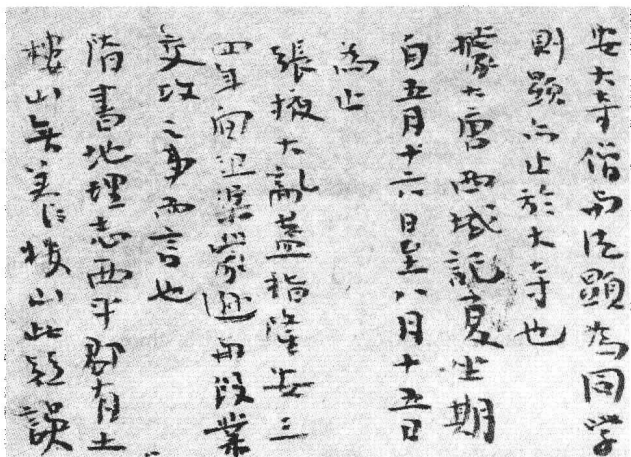 安大寺僧与法顯為同学
則顯亦止於大寺也
據大唐西域記夏坐期
自五月十六日至八月十五日
為止
張掖大亂蓋指隆安三
四年间沮渠蒙遜与段業
交攻之事而言也
隋書地理志西平郡有土
楼山無养楼山此疑誤